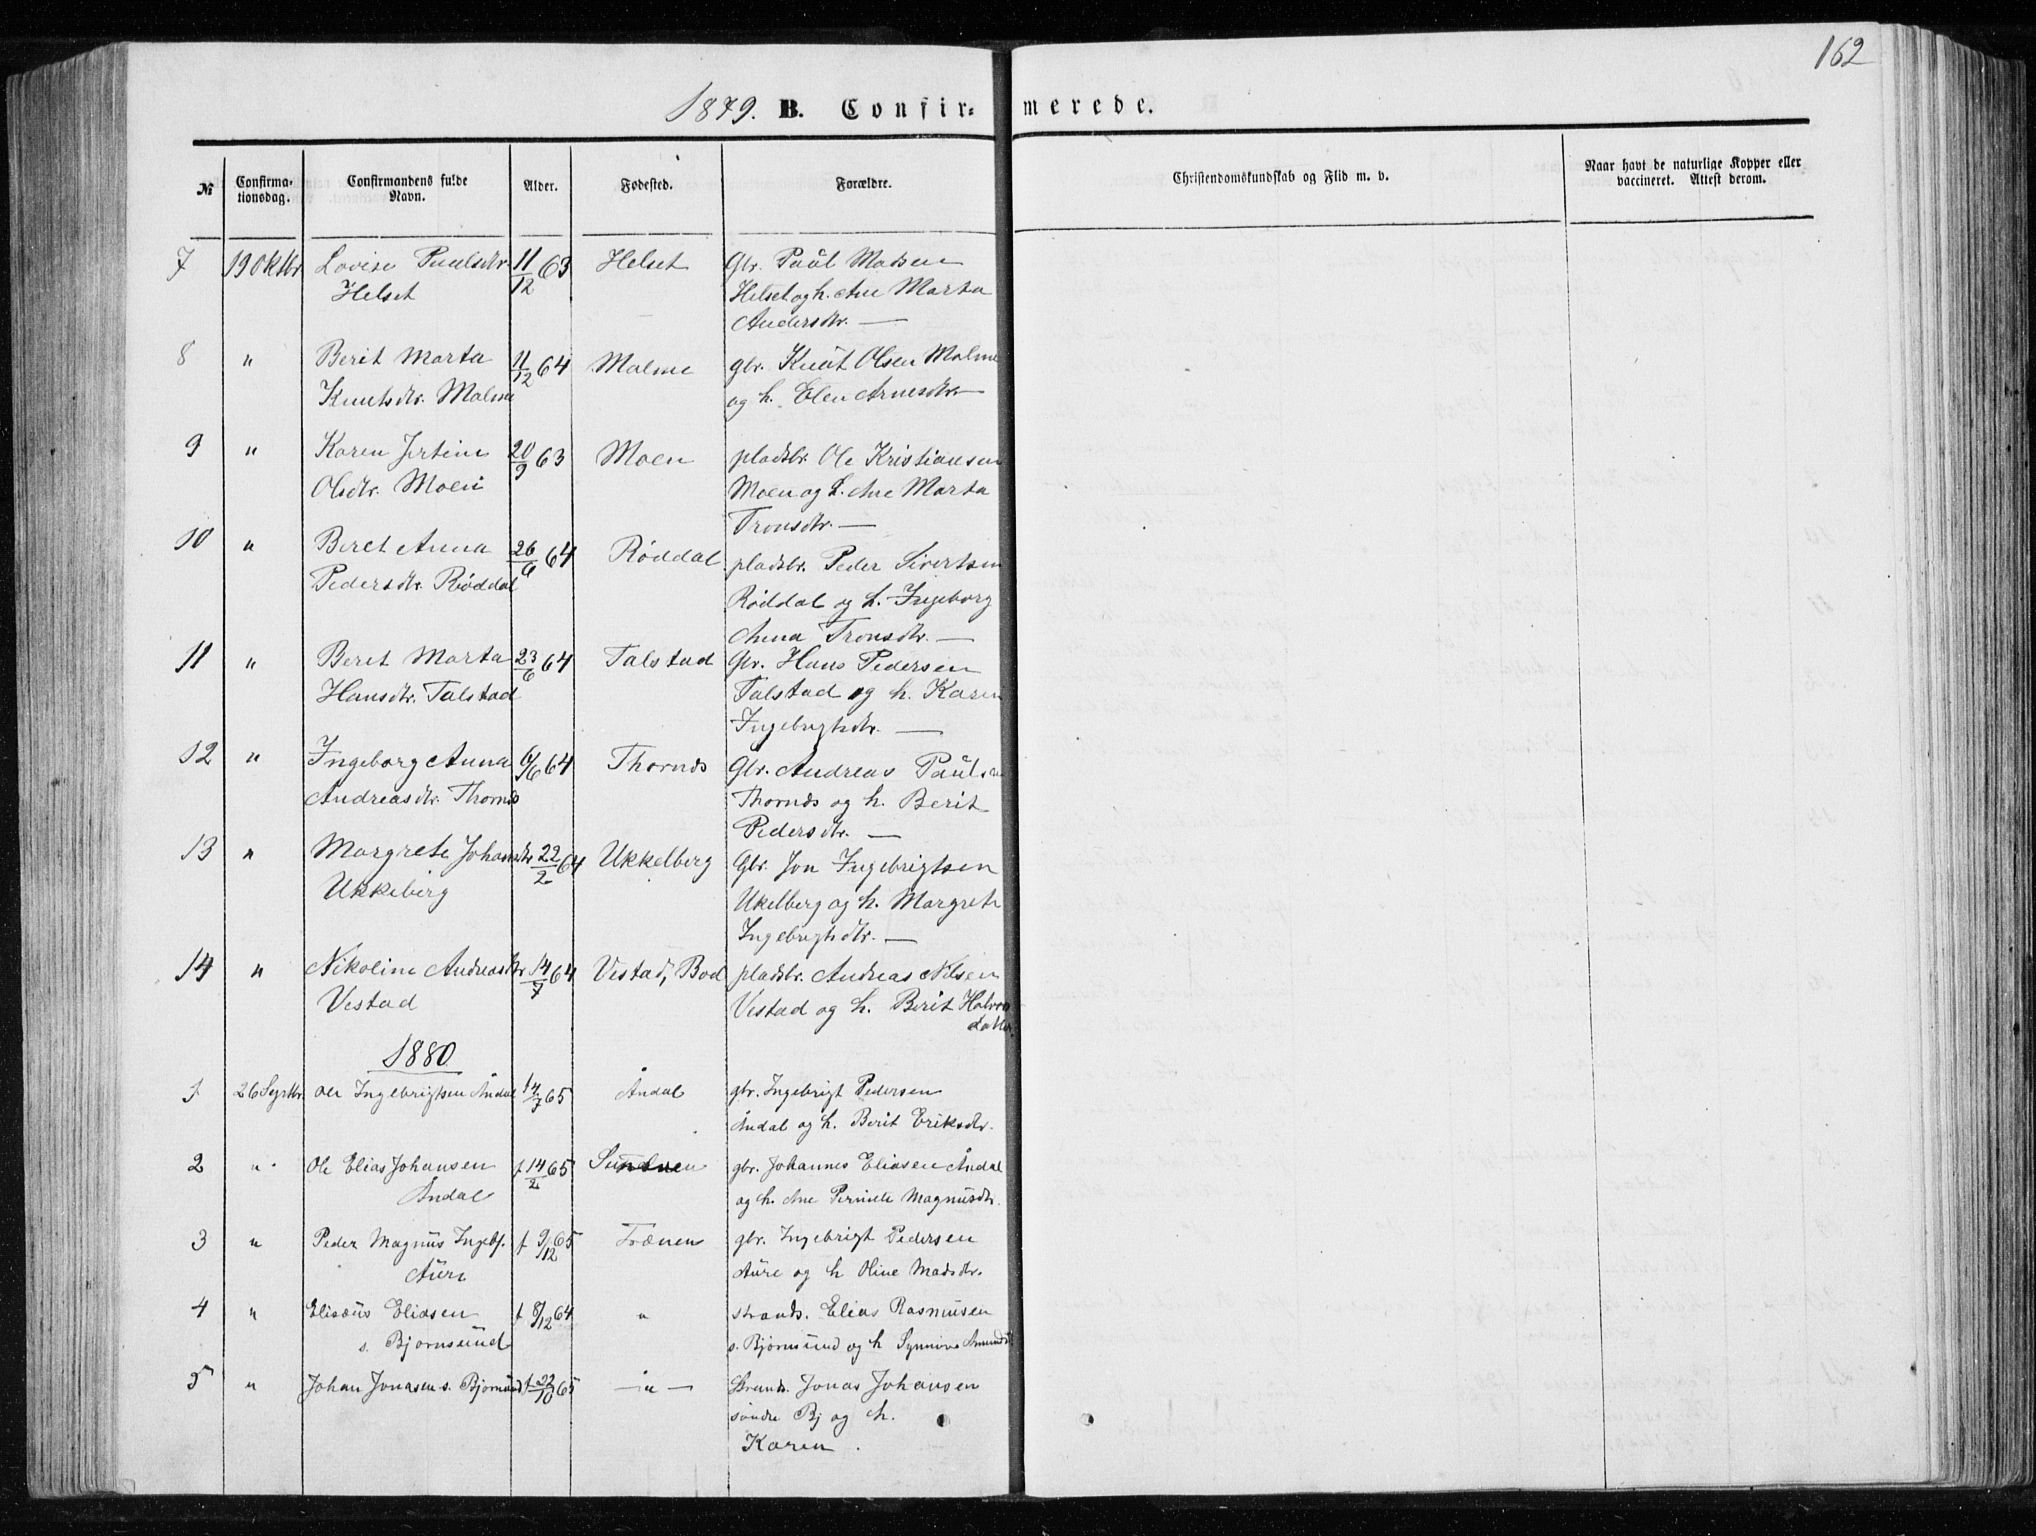 162
1879. B. Confir- merede.
№ Confirma- tionsdag. Confirmandens fulde Navn. Alder. Fødested. Forældre. Christendomskundskab og Flid m. v. Naar havt de naturlige Kopper eller vaccineret. Attest derom.
7 19 Oktbr. Lovise Paulsdtr. 11/12 63 Helset Gbr. Paul Madsen
Helset Helset og h. Ane Marta
Andersdtr. —
8 " Berit Marta 11/12 64 Malme gbr. Knut Olsen Malme
Knutsdtr. Malme og h. Elen Arnesdtr.
9 " Karen 20/9 63 Moen pladsbr. Ole Kristiansen
Olsdtr. Moen Moen og h. Ane Marta
Tronsdtr. —
10 " Beret Anna 26/6 64 Røddal pladsbr. Peder Sivertsen
Pedersdtr. Røddal Røddal og h. Ingeborg
Anna Tronsdtr. —
11 " Beret Marta 23/6 64 Talstad Gbr. Hans Pedersen
Hansdtr. Talstad Talstad og h. Karen
Ingebrigtsdtr. —
12 " Ingeborg Anna 6/6 64 Thornæs Gbr. Andreas Paulsen
Andreasdtr. Thornæs Thornæs og h. Berit
Pedersdtr. —
13 " Margrete Johansdtr 22/2 64 Ukkelberg Gbr. Jon Ingebrigtsen
Ukkeberg Ukelberg og h. Margrete
Ingebrigtsdtr. —
14 " Nikoline Andreasdtr 14/7 64 Vestad, Bod pladsbr. Andreas Nilsen
Vestad Vestad og h. Berit Halvor
1880
1 26 Septbr. Ole Ingebrigtsen Åndal 14/7 65 Åndal gbr. Ingebrigt Pedersen
Åndal og h. Berit Eriksdtr.
2 " Ole Elias Johansen f 14/2 65 gbr. Johannes Eliasen Åndal
Åndal og h. Ane Pernele Magnusdtr.
3 " Peder Magnus Ingebr. f 9/12 65 Frænen gbr. Ingebrigt Pedersen
Aure Aure og h Oline Madsdtr.
4 " Elisæus Eliasen f 8/12 64 " strands. Elias Rasmusen
s. Bjørnsund s. Bjørnsund og h Synnive Amundsdt
5 " Johan Jonasen s. Bjørnsund f 22/10 65 — " — Strands. Jonas Johansen
søndre Bj og h.
Karen .